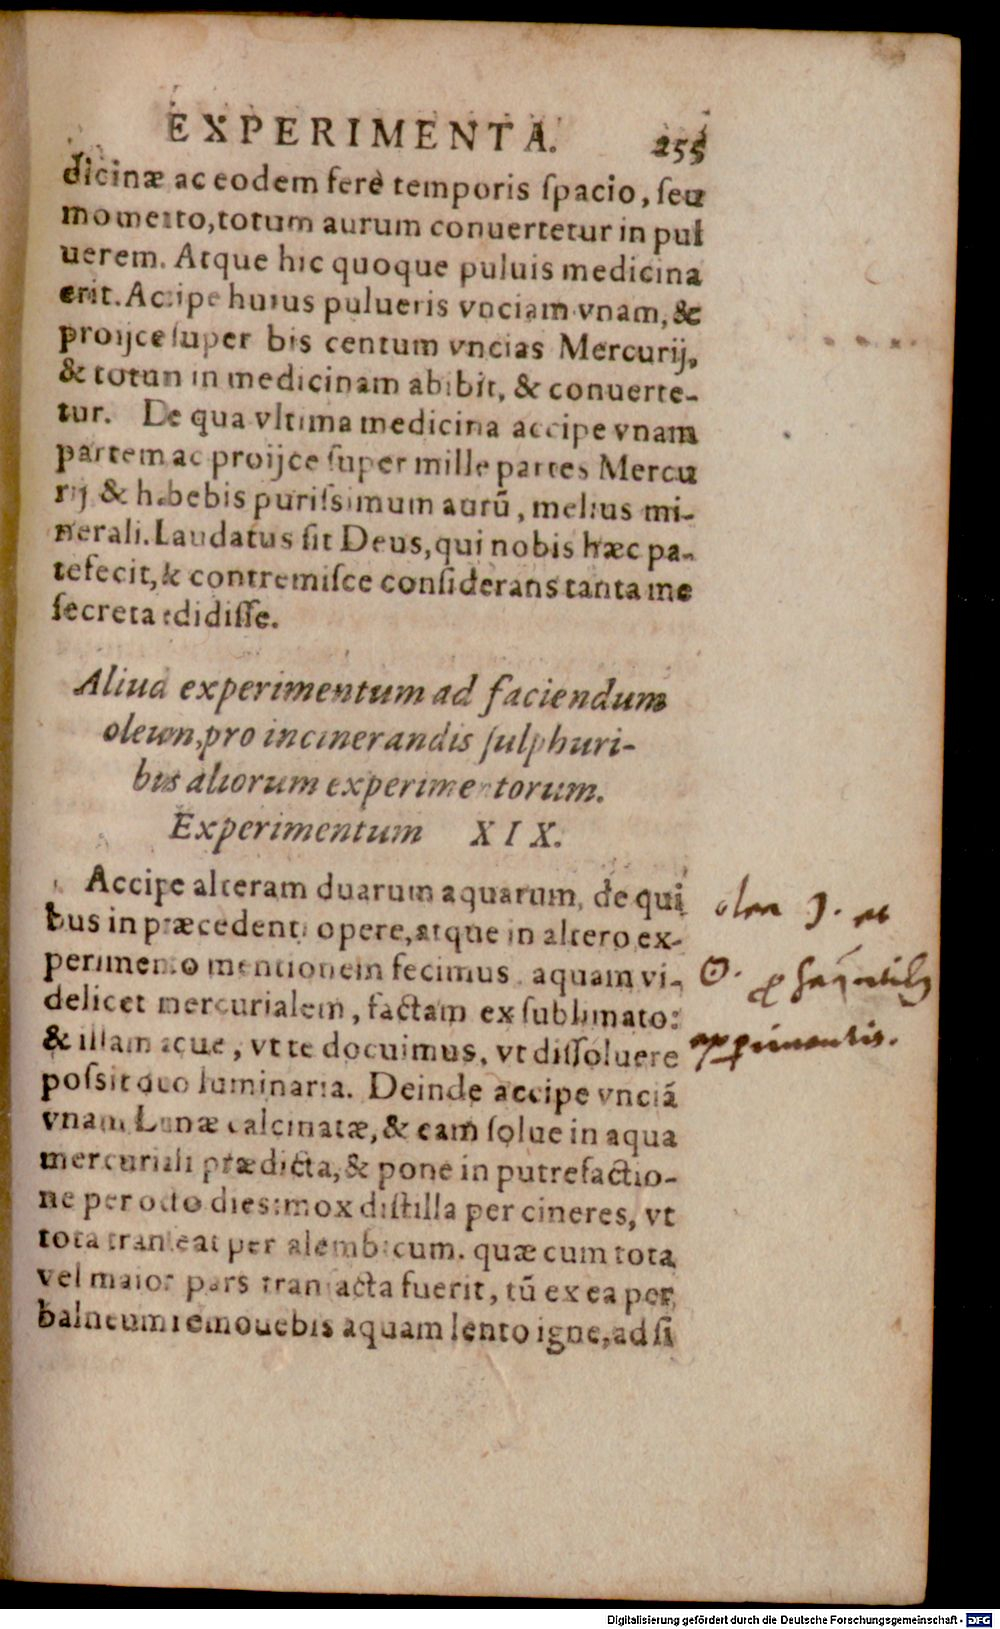 EXPERIMENTA. 255
dicinæ ac eodem ferè temporis ſpacio, ſeu
momento, totum aurum conuertetur in pul
uerem. Atque hic quoque puluis medicina
erit. Accipe huius pulueris vnciam vnam, &
proijce ſuper bis centum vncias Mercurij,
& totum in medicinam abibit, & conuerte-
tur. De qua vltima medicina accipe vnam
partem ac proijce ſuper mille partes Mercu
rij & habebis puriſsimum aurū, melius mi-
nerali. Laudatus ſit Deus, qui nobis hæc pa-
tefecit, & contremiſce conſiderans tanta me
ſecreta edidiſſe.
Aliud experimentum ad faciendum
oleum, pro incinerandis ſulphuri-
bus aliorum experimentorum.
Experimentum XIX.
Accipe alteram duarum aquarum, de qui
bus in præcedenti opere, atque in altero ex-
perimento mentionem fecimus, aquam vi-
delicet mercurialem, factam ex ſublimato:
& illam acue, vt te docuimus, vt diſſoluere
poſsit duo luminaria. Deinde accipe vnciā
vnam Lunæ calcinatæ, & eam ſolue in aqua
mercuriali prædicta, & pone in putrefactio-
ne per octo dies: mox diſtilla per cineres, vt
tota tranſeat per alembicum. quæ cum tota
vel maior pars tranſacta fuerit, tū ex ea per
balneum remouebis aquam lento igne, ad ſi
olea ☽. et
☉. p
experimentis.
Digitalisierung gefördert durch die Deutsche Forschungsgemeinschaft - DFG